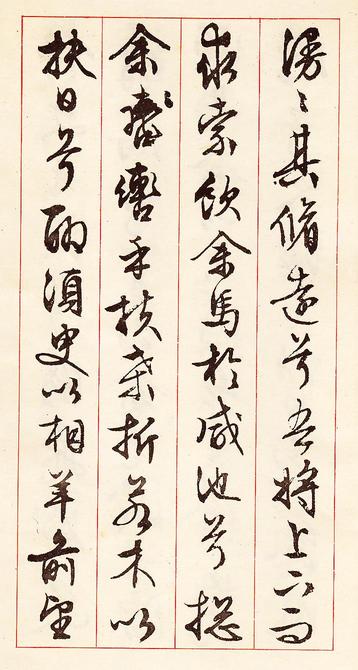 漫〻其脩遠兮吾將上下而
求索飲余馬於咸池兮摠
余轡乎扶桑折若木以
扶日兮聊須臾以相羊前望